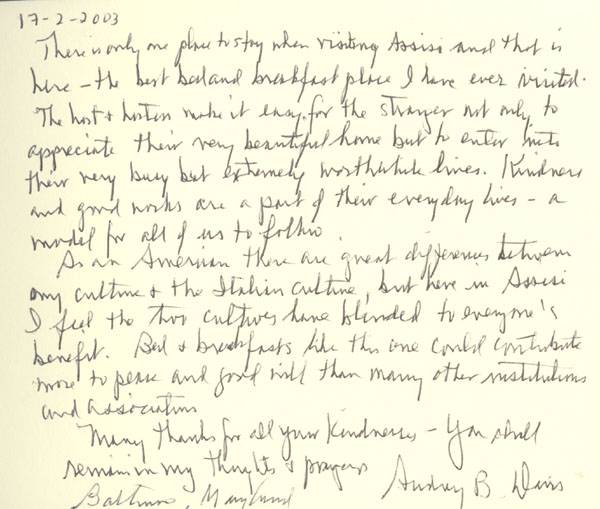 17-2-2003
There is only one place to stay when visiting Assisi and that is
here - the best bed and breakfast place I have ever visited.
The host & hostess make it easy for the stranger not only to
appreciate their very beautiful home but to enter into
their very busy but extremely worthwhile lives. Kindness
and good works are a part of their everyday lives - a
model for all of us to follow.
As an American there are great differences between
my culture & the Italian culture, but here in Assisi
I feel the two cultures have blended to everyone's
benefit. Bed & breakfasts like this one could contribute
more to peace and good will than many other institutions
and associations
Many thanks for all your kindnesses - You shall
remain in my thoughts & prayers
Audrey B. Davis
Baltimore, Maryland